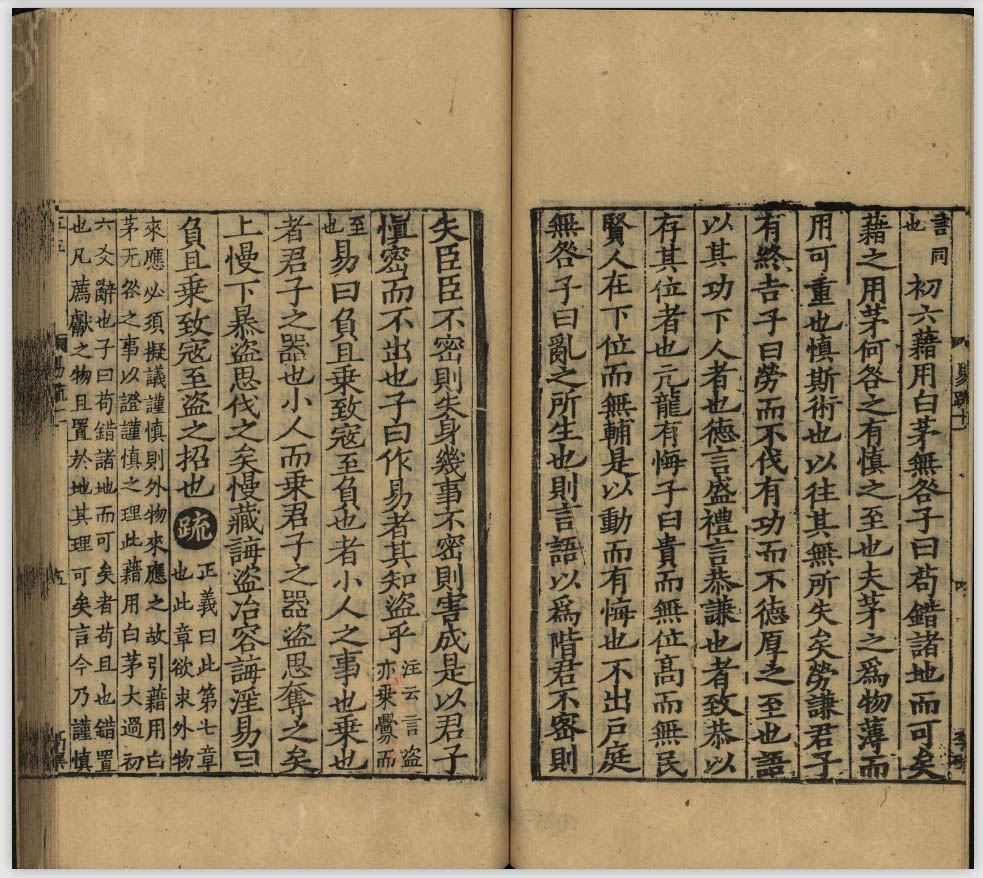 言同也初六藉用白茅無咎子曰苟錯諸地而可矣
藉之用茅何咎之有慎之至也夫茅之爲物薄而
用可重也慎斯術也以往其無所失矣勞謙君子
有終吉子曰勞而不伐有功而不德厚之至也語
以其功下人者也德言盛禮言恭謙也者致恭以
存其位者也亢龍有悔子曰貴而無位髙而無民
賢人在下位而無輔是以動而有悔也不出戸庭
無咎子曰亂之所生也則言語以爲階君不密則
失臣臣不密則失身幾事不密則害成是以君子
愼密而不出也子曰作易者其知盜乎注云言盜亦乗釁而
至也易曰負且乗致寇至負也者小人之事也乗也
者君子之器也小人而乗君子之器盜思奪之矣
上慢下暴盜思伐之矣慢藏誨盜冶容誨淫易曰
負且乗致寇至盜之招也疏正義曰此第七章也此章欲求外物
來應必須擬議謹慎則外物來應之故引藉用白
茅无咎之事以證謹慎之理此藉用白茅大過初
六爻辭也子曰苟錯諸地而可矣者苟且也錯置
也凡薦獻之物且置於地其理可矣言今乃謹慎